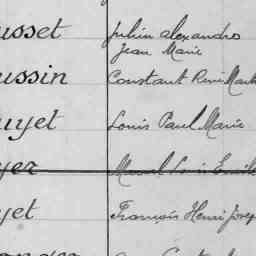 usset Julien alexandre
Jean Marie
ussin Constant René Marie
uyet Louis Paul Marie
yer Marcel Louis Emile
yet François Henri Josep